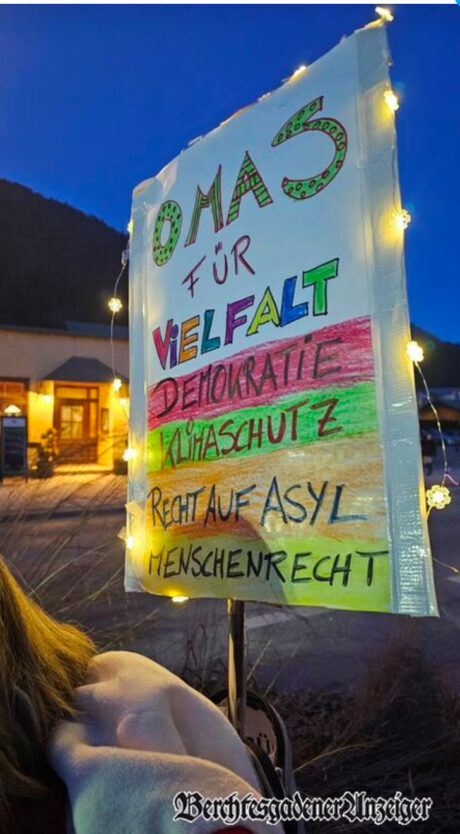 OMAS
FÜR
VIELFALT
DEMOKRATIE
KLIMASCHUTZ
RECHT AUF ASYL
MENSCHENRECHT
BerchtesgadenerAnzeiger